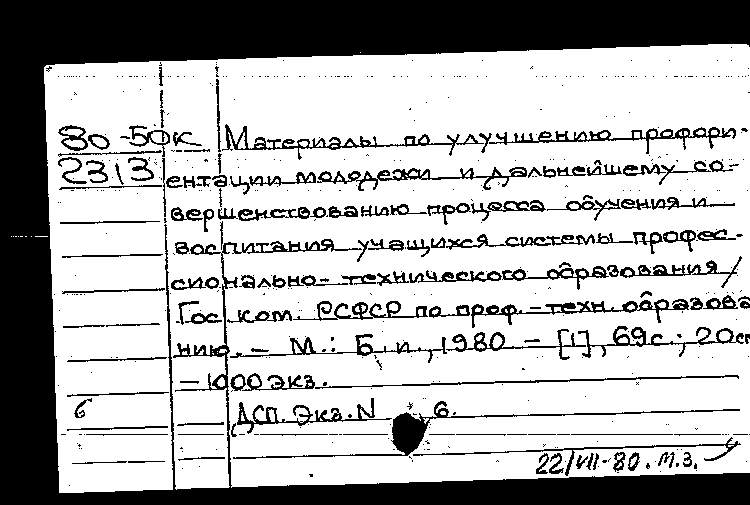 80-50к Материалы по улучшению профори-
2313 ентации молодежи и дальнейшему со-
вершенствованию процесса обучения и
воспитания учащихся системы профес-
сионально-технического образования /
Гос. ком. РСФСР по проф.-техн. образова
нию. - М.: Б. и., 1980 - [1], 69с.; 20см
- 1000 экз.
6 ДСП. Экз. N 6.
22/VII-80. М.З.